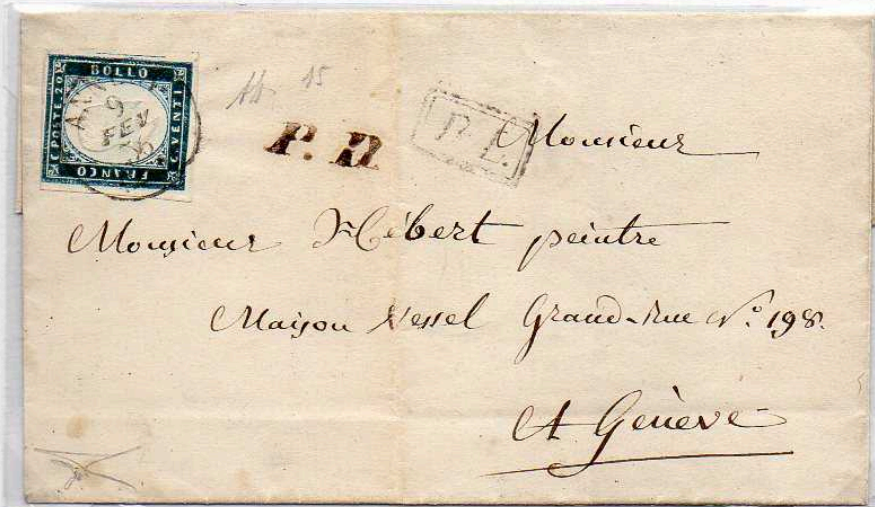 BOLLO
C. POSTE. 20
C. VENTI
FRANCO
9
FEV
15
P. D.
Monsieur
Monsieur Hébert peintre
Maison Grand-rue N.º 198.
A Genève